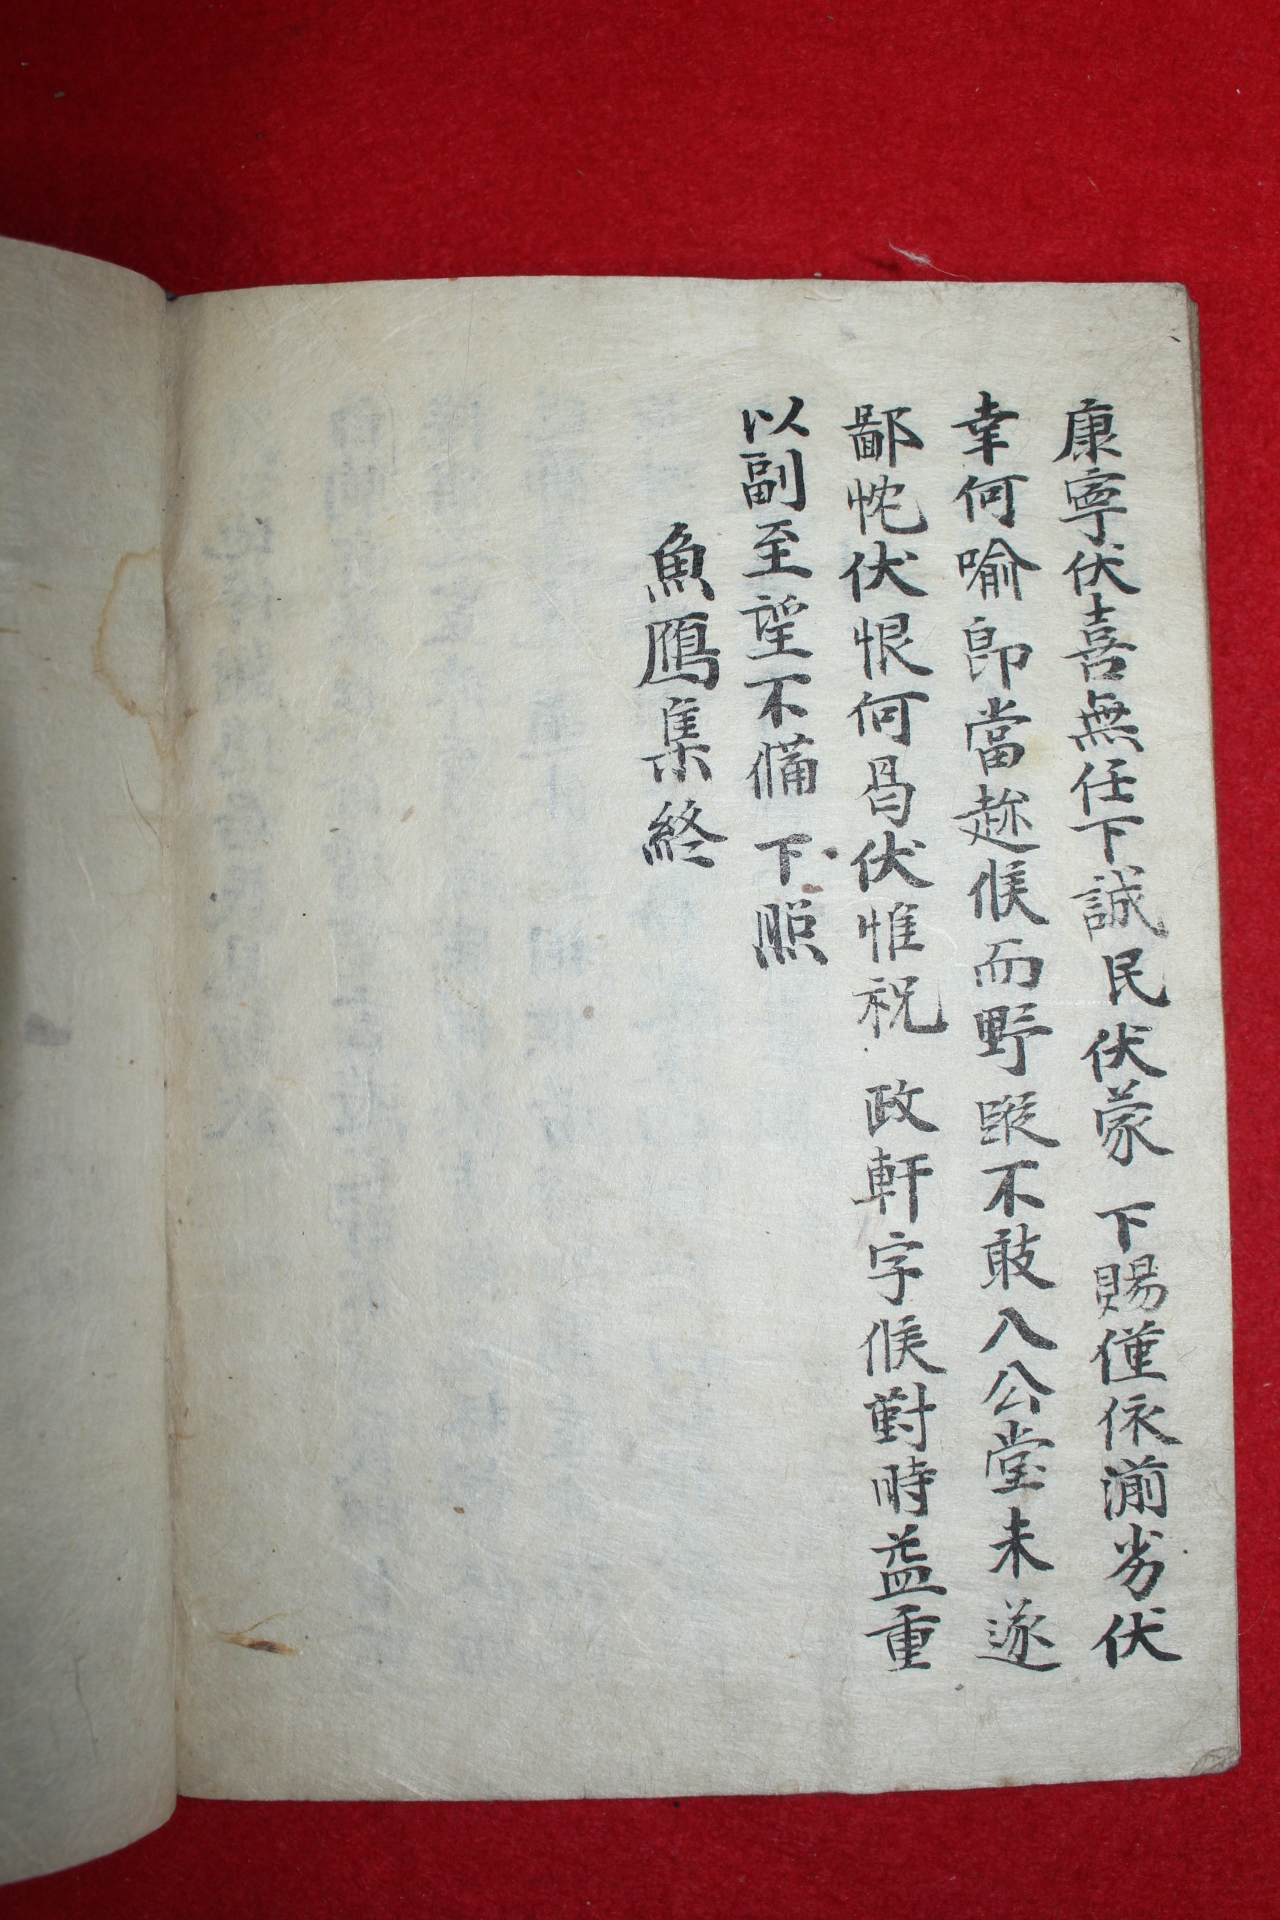 康寧伏喜無任下誠民伏蒙 下賜僅依湔劣伏
幸何喻即當趍候而野蹤不敢入公堂未遂
鄙忱伏恨何曷伏惟祝 政軒字候對時益重
以副至望不備 下照
魚鴈集終